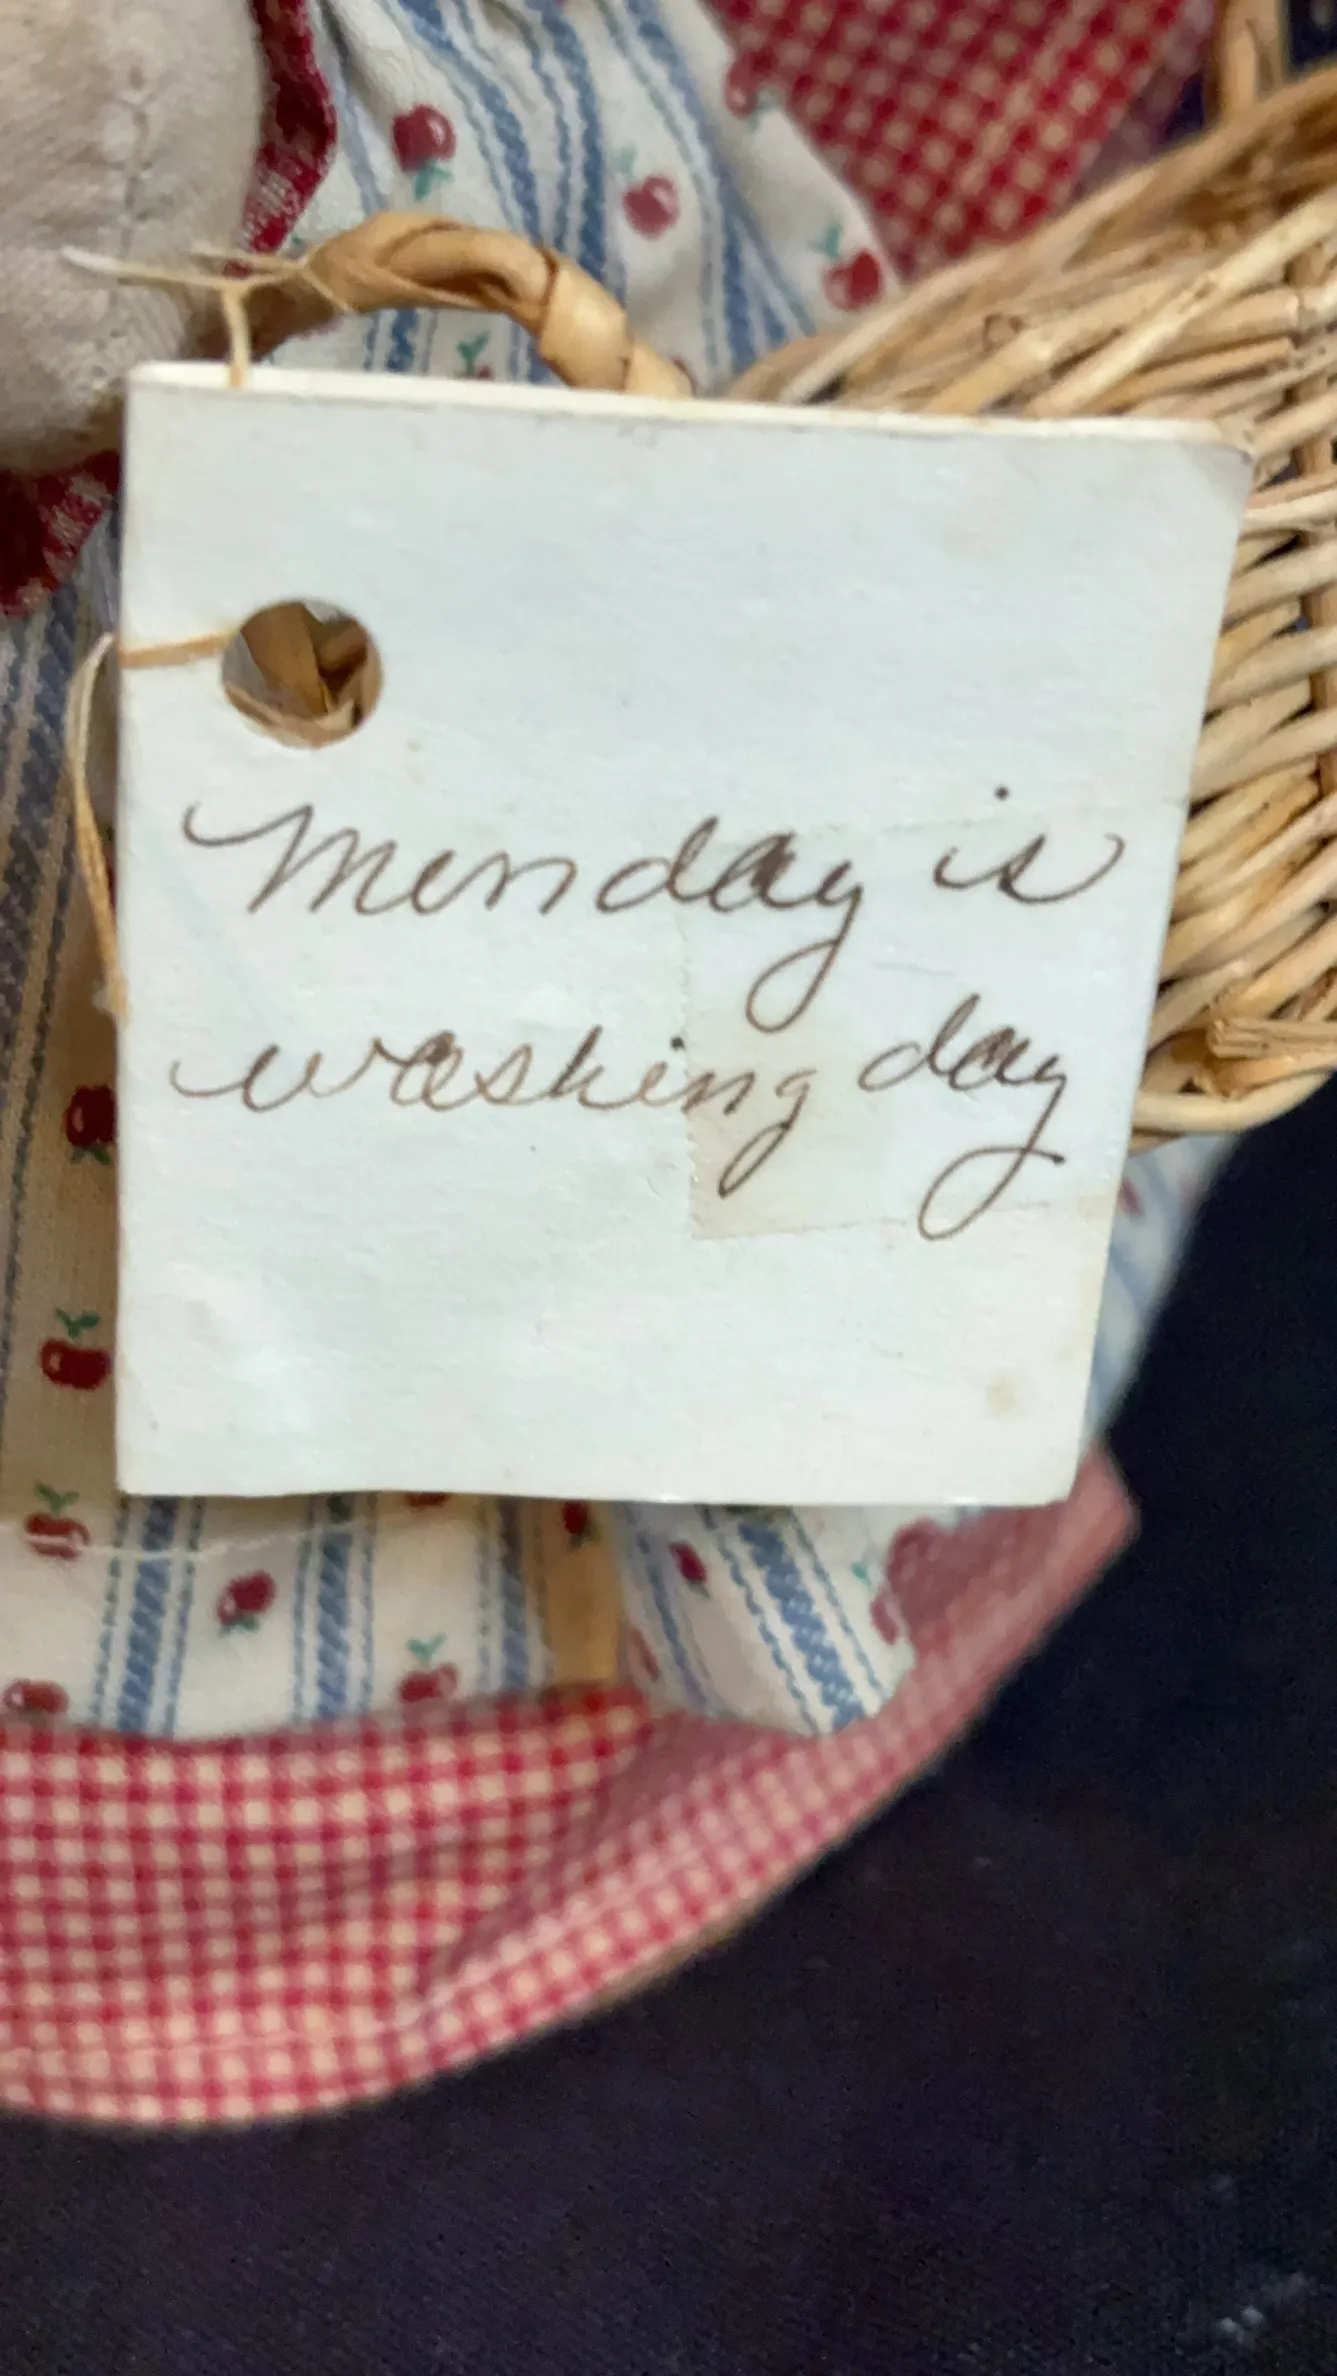 Monday is
washing day